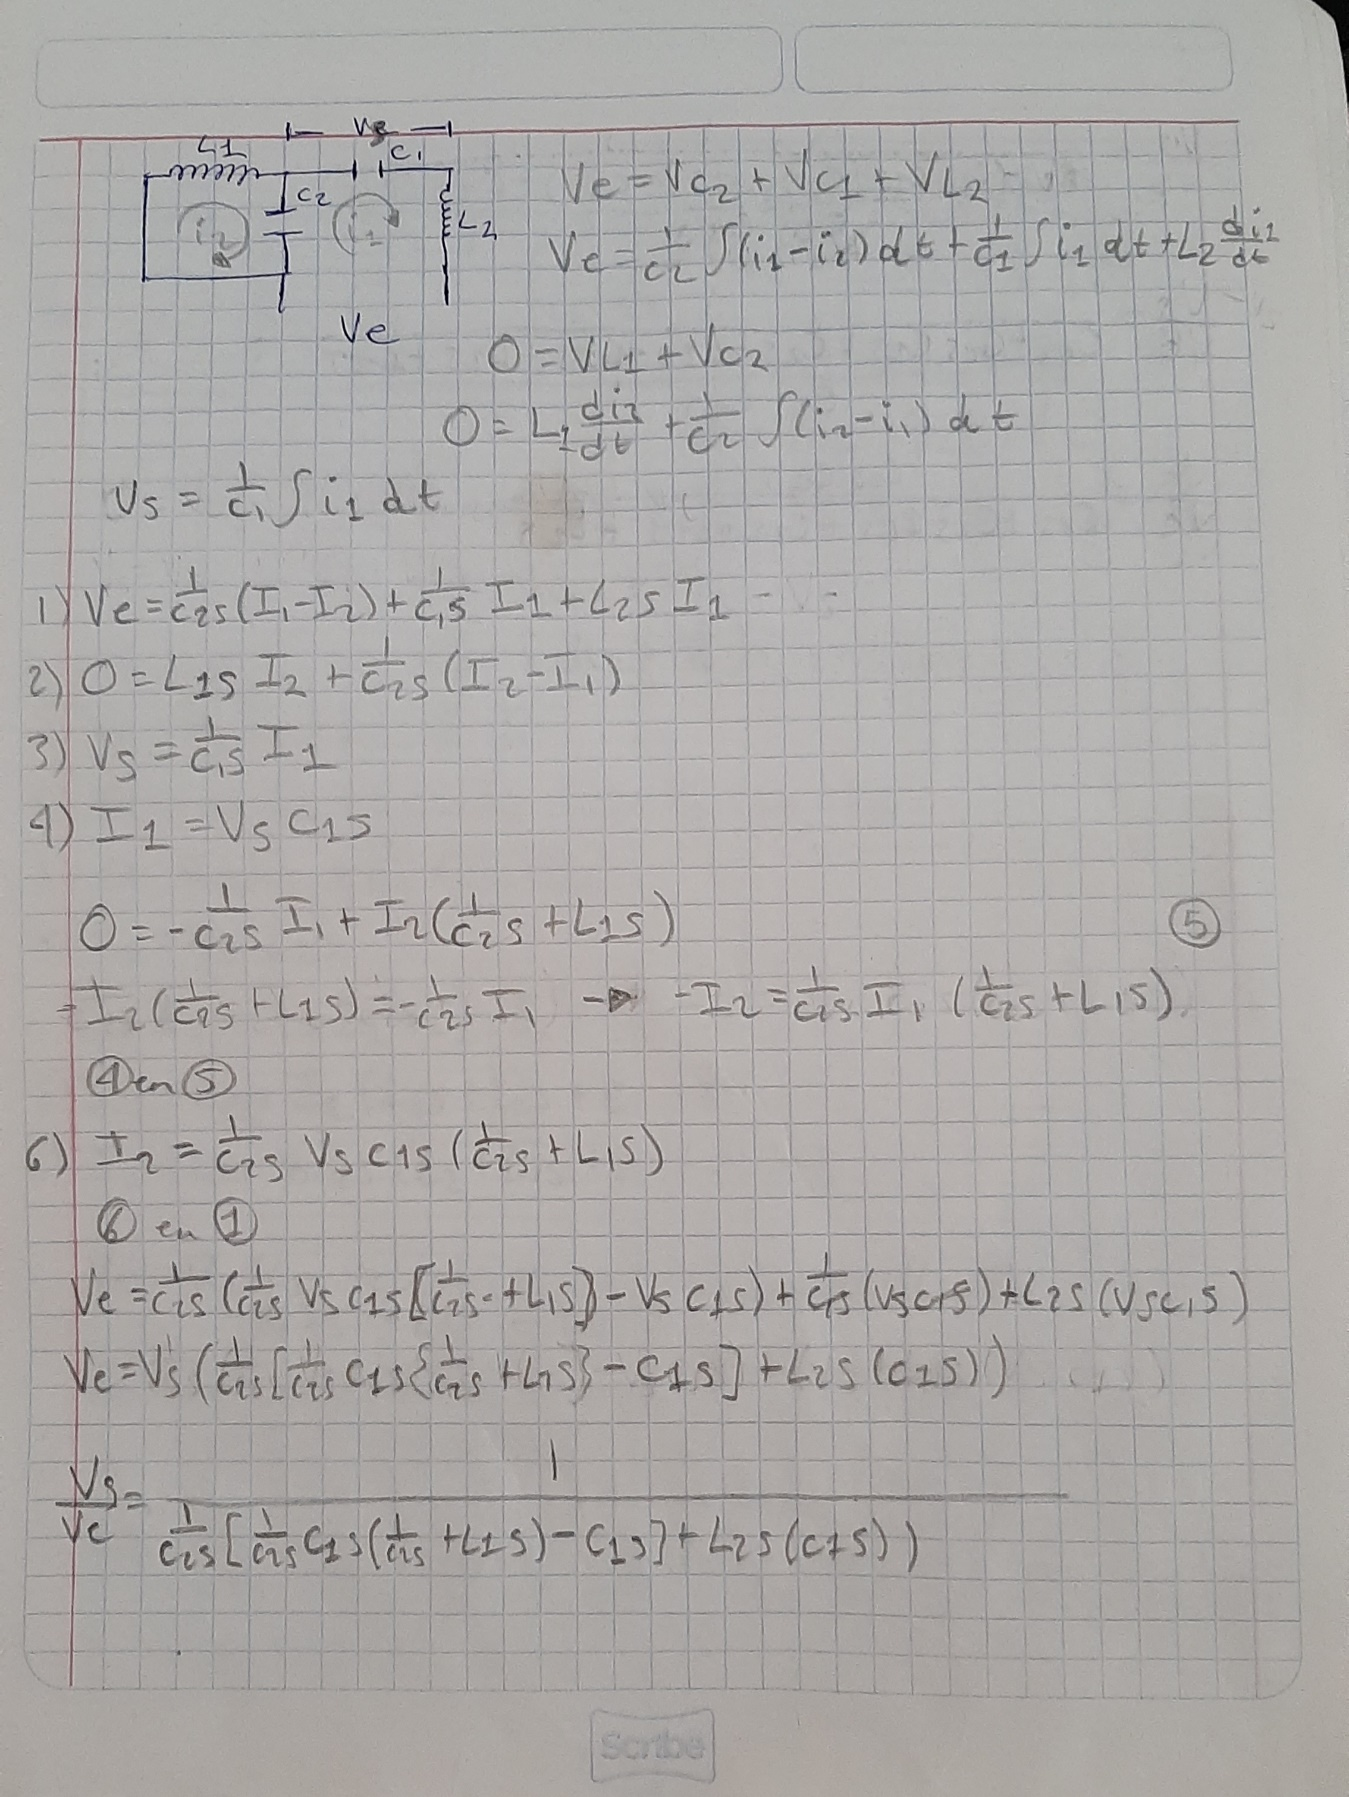 Vs
L1
C1
C2
i2
i1
L2
Ve
Ve = Vc2 + Vc1 + VL2
Ve = 1/c2 ∫(i1-i2)dt + 1/c1 ∫i1 dt + L2 di1/dt
0 = VL1 + Vc2
0 = L1 di2/dt + 1/c2 ∫(i2-i1)dt
Vs = 1/c1 ∫ i1 dt
1) Ve = 1/c2s (I1-I2) + 1/c1s I1 + L2s I1
2) 0 = L1s I2 + 1/c2s (I2-I1)
3) Vs = 1/c1s I1
4) I1 = Vs c1s
0 = -1/c2s I1 + I2(1/c2s + L1s)
5
-I2(1/c2s + L1s) = -1/c2s I1 → -I2 = 1/c2s I1 (1/c2s + L1s)
4 en 5
6) I2 = 1/c2s Vs c1s (1/c2s + L1s)
6 en 1
Ve = 1/c2s (1/c2s Vs c1s [1/c2s + L1s] - Vs c1s) + 1/c1s (Vs c1s) + L2s (Vs c1s)
Ve = Vs (1/c2s [1/c2s c1s {1/c2s + L1s} - c1s] + L2s (c1s))
Vs/Ve = 1 / 1/c2s [1/c2s c1s (1/c2s + L1s) - c1s] + L2s (c1s))
Scribe